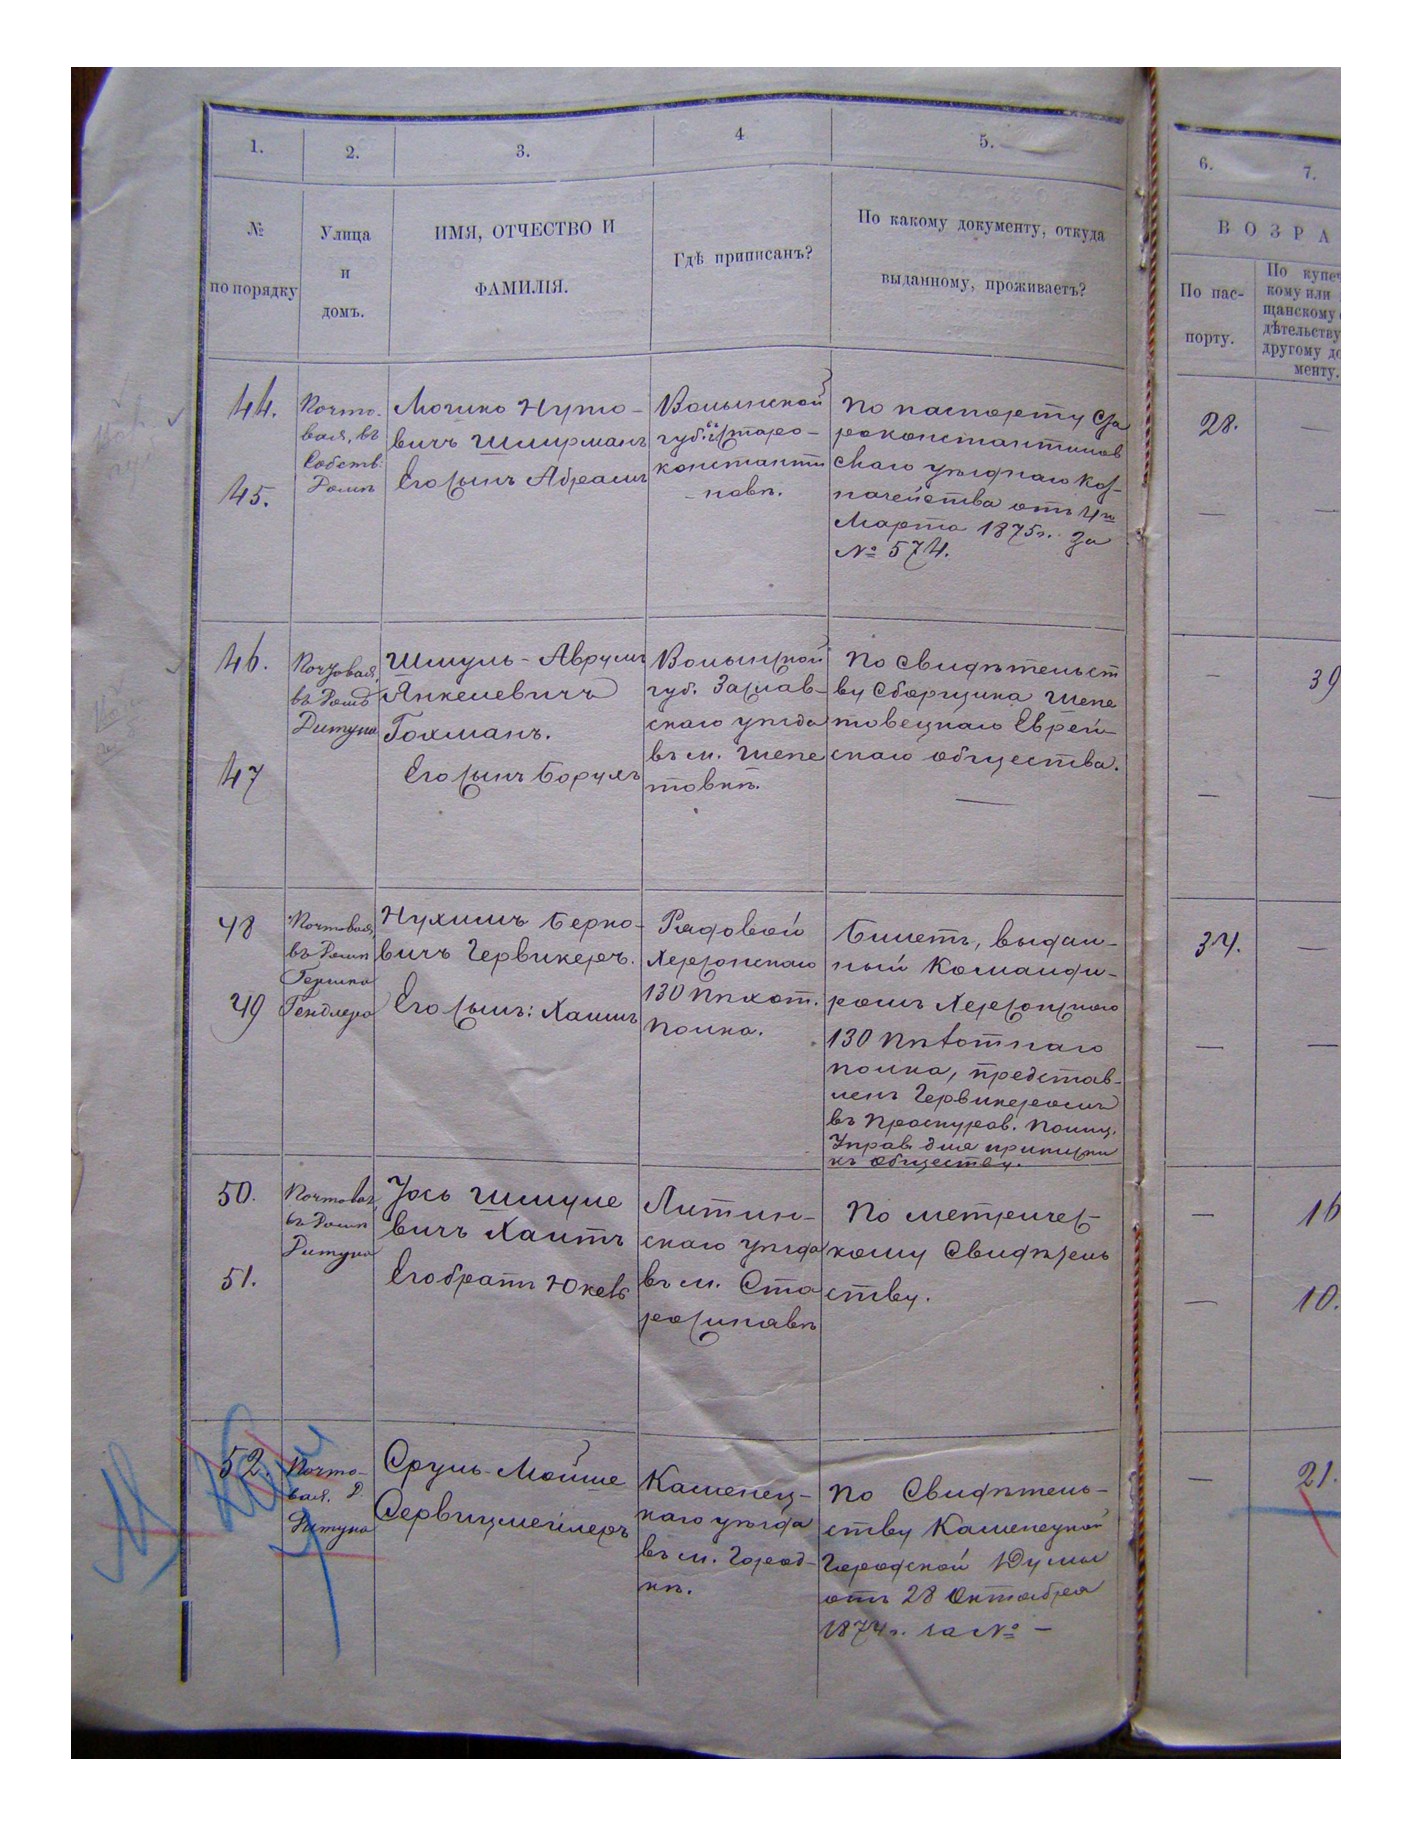 1.
2.
3.
4
5.
6.
7.
№
по порядку
Улица
и
домъ.
ИМЯ, ОТЧЕСТВО И
ФАМИЛІЯ.
Гдѣ приписанъ?
По какому документу, откуда
выданному, проживаетъ?
ВОЗРА
По пас-
порту.
По купе
кому или
щанскому
дѣтельству
другому до
менту.
44.
45.
Почто-
вая, въ
Собств:
Домѣ
Мошко Нуто-
вичъ Шмирманъ
Его сынъ Абрамъ
Волынской
губ. въ Старо-
константи
-новѣ.
По паспорту Ста
роконстантинов
скаго уѣзднаго Каз-
начейства отъ 4го
Марта 1875г. за
№ 574.
28.
—
—
—
46.
47
Почтовая,
въ Домѣ
Дитуна
Шмуль-Аврумъ
Янкелевичъ
Гохманъ.
Его сынъ Борухъ
Волынской
губ. Заслав-
скаго уѣзда
въ м. Шепе
товкѣ.
По свидѣтельст
ву Сборщика Шепе
товецкаго Еврей-
скаго общества.
—
—
39
—
—
48
49
Почтовая,
въ Домѣ
Гершка
Гендлера
Нухимъ Берко-
вичъ Червикеръ.
Его сынъ: Хаимъ
Рядовой
Херсонскаго
130 Пѣхот.
полка.
Билетъ, выдан-
ный Команди-
ромъ Херсонскаго
130 Пѣхотнаго
полка, представ-
ленъ Червикеромъ
въ Проскуров. Полиц.
Управ. для приписки
къ обществу.
34.
—
—
—
50.
51.
Почтовая,
въ Домѣ
Дитуна
Уось Шмуле
вичъ Хаитъ
Его братъ Юкевъ
Литин-
скаго уѣзда
въ м. Ста
росинявѣ
По метричес-
кому Свидѣтель
ству.
—
16
—
10.
52.
Почто-
вая. Д.
Дитуна
Сруль-Мойше
Сервицмейлеръ
Каменец-
каго уѣзда
въ м. Город-
кѣ.
По Свидѣтель-
ству Каменецкой
Городской Думы
отъ 28 Октября
1874г. за № —
—
21.